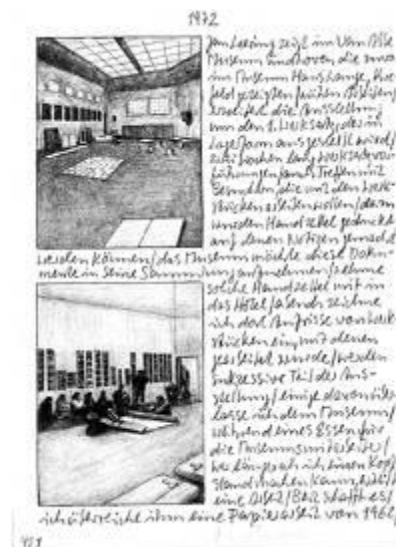 1972
Jan Leering zeigt im Van Abbe
Museum Eindhoven die zuvor
im Museum Haus Lange, Kre
feld gezeigten frühen Arbeiten/
erweitert die Ausstellung
um den 1. Werksatz, der im
ausgestellt wird/
zwei Wochen lang
führungen/auch Treffen mit
Besuchern, die mit den Werk-
stücken arbeiten wollen/
werden Handzettel gedruckt
auf denen Notizen gemacht
werden können/das Museum möchte diese Doku-
mente in seine Sammlung aufnehmen/nehme
solche Handzettel mit in
das Hotel/abends zeichne
ich dort Umrisse von Werk
stücken ein, mit denen
gearbeitet wurde/werden
sukzessive Teil der Aus-
stellung/einige davon über
lasse ich dem Museum/
während eines Essens für
die Museumsmitarbeiter/
ich einen Kopf
stand machen kann,
eine Arbeit/ schafft es/
ich überreiche ihm eine Papierarbeit von 1962/